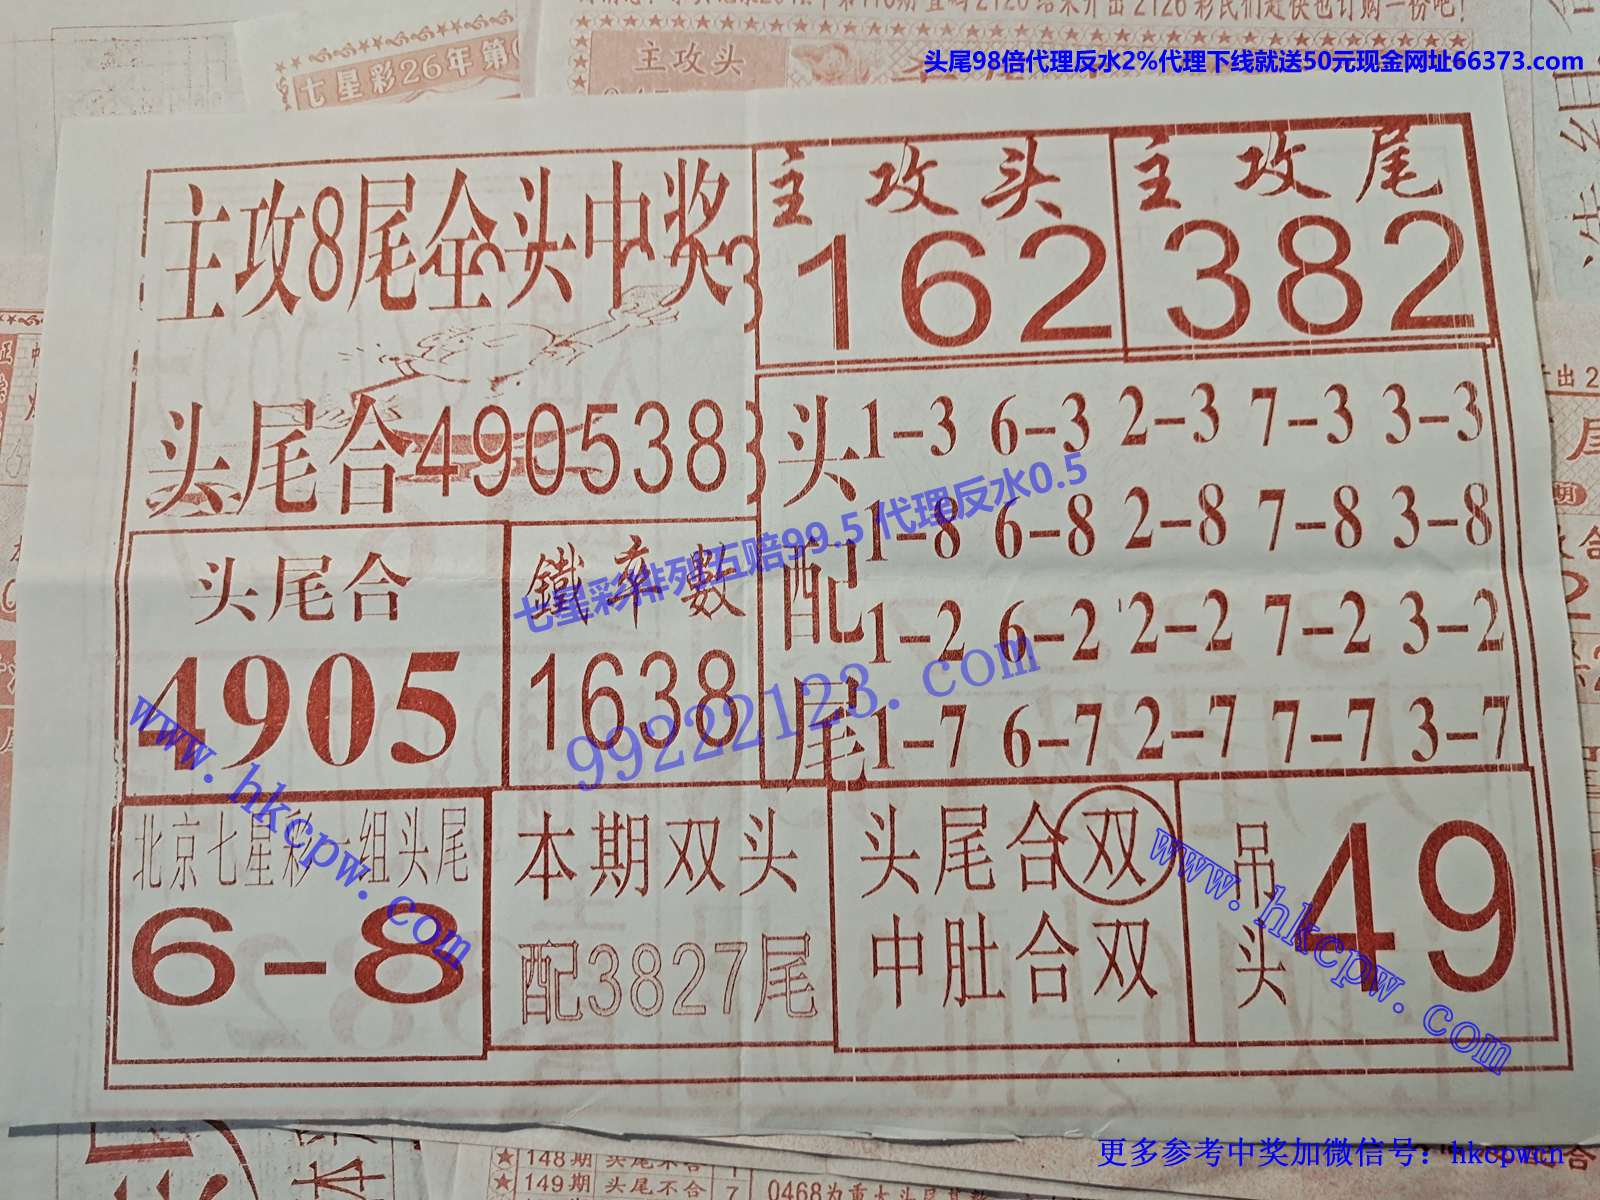 七星彩26年第
主攻头
头尾98倍代理反水2%代理下线就送50元现金网址66373.com
主攻8尾全头中奖
头尾合490538
主攻头
162
主攻尾
382
头配尾
1-3 6-3 2-3 7-3 3-3
1-8 6-8 2-8 7-8 3-8
1-2 6-2 2-2 7-2 3-2
1-7 6-7 2-7 7-7 3-7
头尾合
4905
鐵率數
1638
七星彩排列五赔99.5代理反水0.5
99222123.com
www.hkcpw.com
北京七星彩一组头尾
6-8
本期双头
配3827尾
头尾合双
中肚合双
吊头
49
www.hkcpw.com
更多参考中奖加微信号：hkcpwcn
148期 头尾不合
149期 头尾不合 7